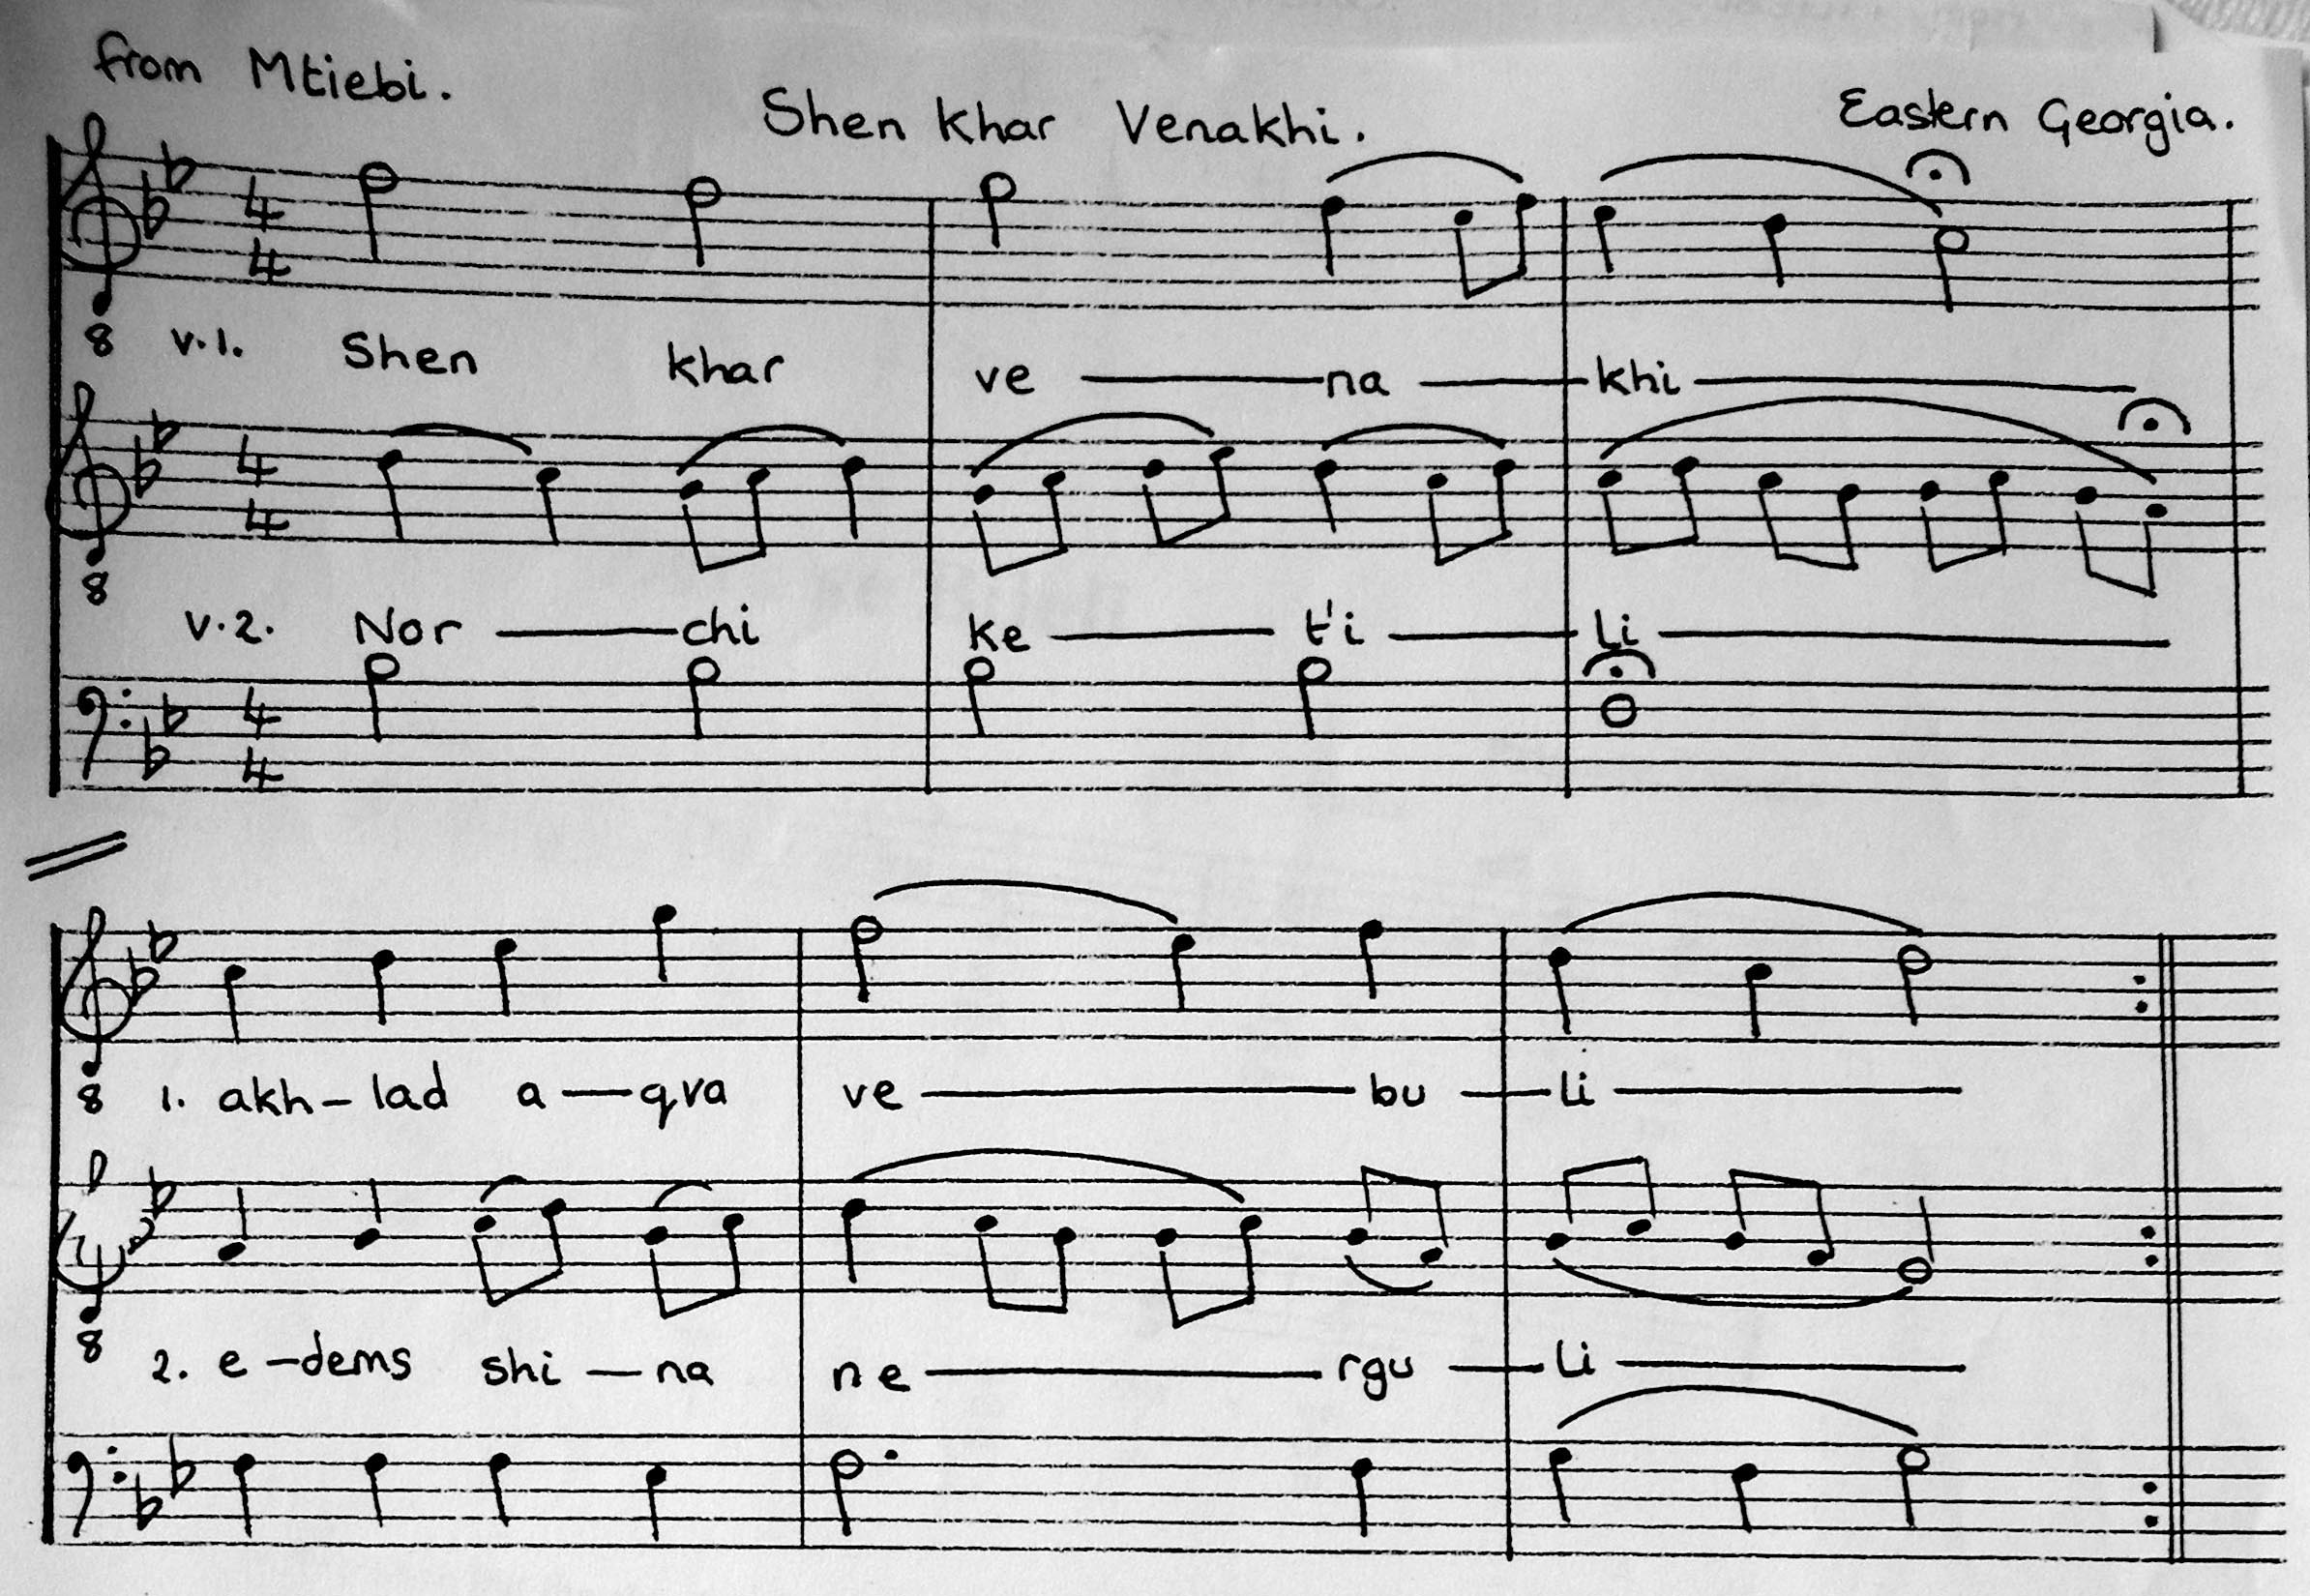 from Mtiebi.
Shen Khar Venakhi.
Eastern Georgia.
4
4
8 v.1. Shen khar ve — na — khi —
4
4
8
v.2. Nor — chi ke — t'i — li —
4
4
8 1. akh – lad a — qva ve — bu — li —
8 2. e – dems shi — na ne — rgu — li —